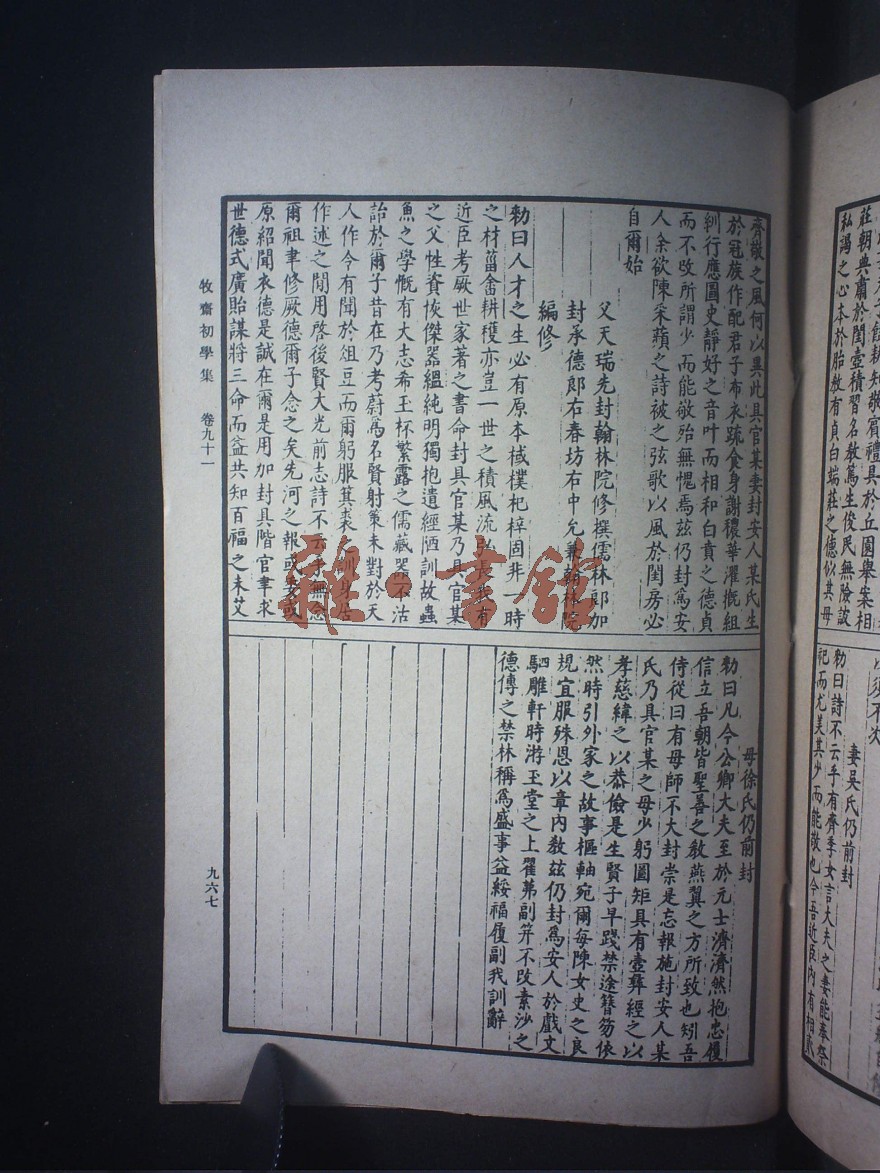 子餽耕知敬賓禮具於丘園舉案相
莊朝典肅於閨壼積習名敎篤生俊民無險詖
私謁之心本於胎敎有貞白端莊之德似其母
以須不次
妻吳氏仍前封
勅曰詩不云乎有齊季女言大夫之妻能奉祭
祀而尤美其少而能敬也今吾近臣內有相
齊敬之風何以異此具官某妻封安人某氏生
於冠族作配君子布衣疏食身謝穠華濯摡組
紃行應圖史靜好之音叶而相和白賁之德貞
而不改所謂少而能敬殆無愧焉兹仍封爲安
人余欲陳采蘋之詩被之弦歌以風於閨房必
自爾始
父天瑞先封翰林院修撰儒林郎加
封承德郎右春坊右中允兼翰林院
編修
勅曰人才之生必有原本棫樸杞梓固非一時
之材菑畬耕穫亦豈一世之積風流弘長我有
近臣考厥世家著之書命封具官某乃具官某
之父性資恢傑器韞純明獨抱遺經陋訓故蟲
魚之學慨有大志希玉杯繁露之儒藏器不沽
詒於爾子昔在乃考蔚爲名賢射策未對於天
人作令有聞於俎豆而爾躬服箕裘訓身占
作述之閒用啓後賢大光前志詩不云乎無念
爾祖聿修厥德爾子念之矣先河之報或委或
原紹聞衣德是誠在爾是用加封具階官聿求
世德式廣貽謀將三命而益共知百福之未艾
母徐氏仍前封
勅曰凡今公卿大夫至於元士濟濟然抱忠履
信立吾朝皆聖善之敎燕翼之方所致也矧吾
侍從曰有母師不大封崇是忘報施封安人某
氏乃具官某之母少躬圖矩具有壼彝經之以
孝慈緯之以恭儉是生賢子早踐禁途簪笏依
然時引外家之故事樞軸宛爾每陳女史之良
規宜服殊恩以章內敎兹仍封爲安人於戲文
駟雕軒時游玉堂之上翟茀副笄不改素沙之
德傳之禁林稱爲盛事益綏福履副我訓辭
牧齋初學集 卷九十一
九六七
雜·書館